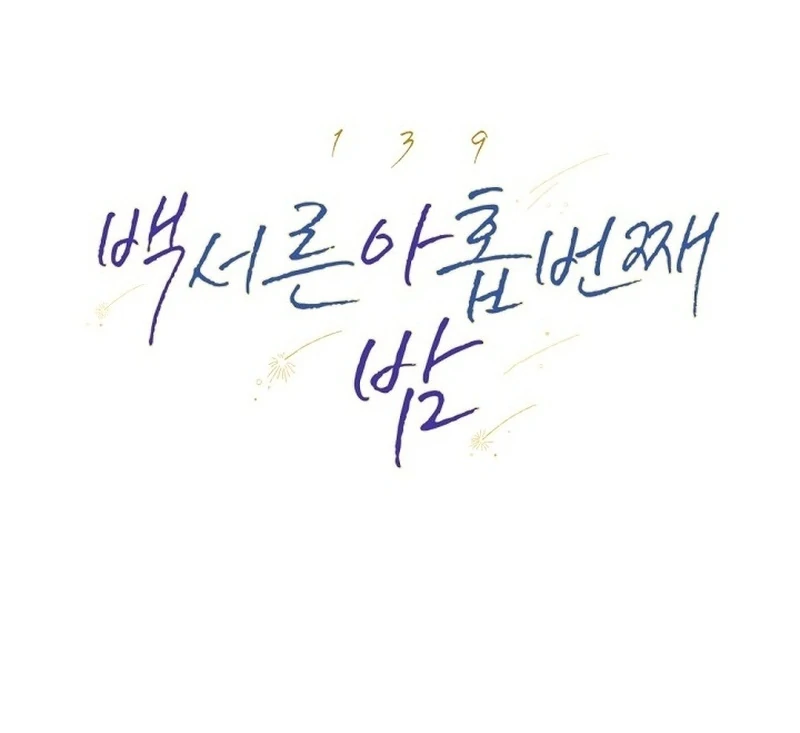 1 3 9
백서른아홉번째
밤